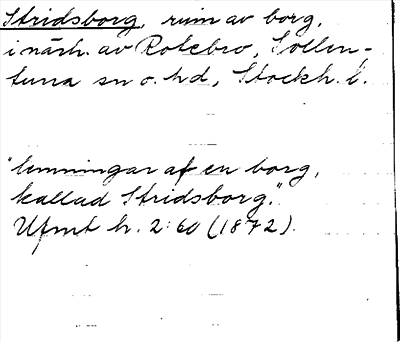 Stridsborg, ruin av borg,
i närh. av Rotebro, Sollen-
tuna sn o. hd, Stockh. l.
"lemningar af en borg,
kallad Stridsborg."
Ufmt h. 2:60 (1872).